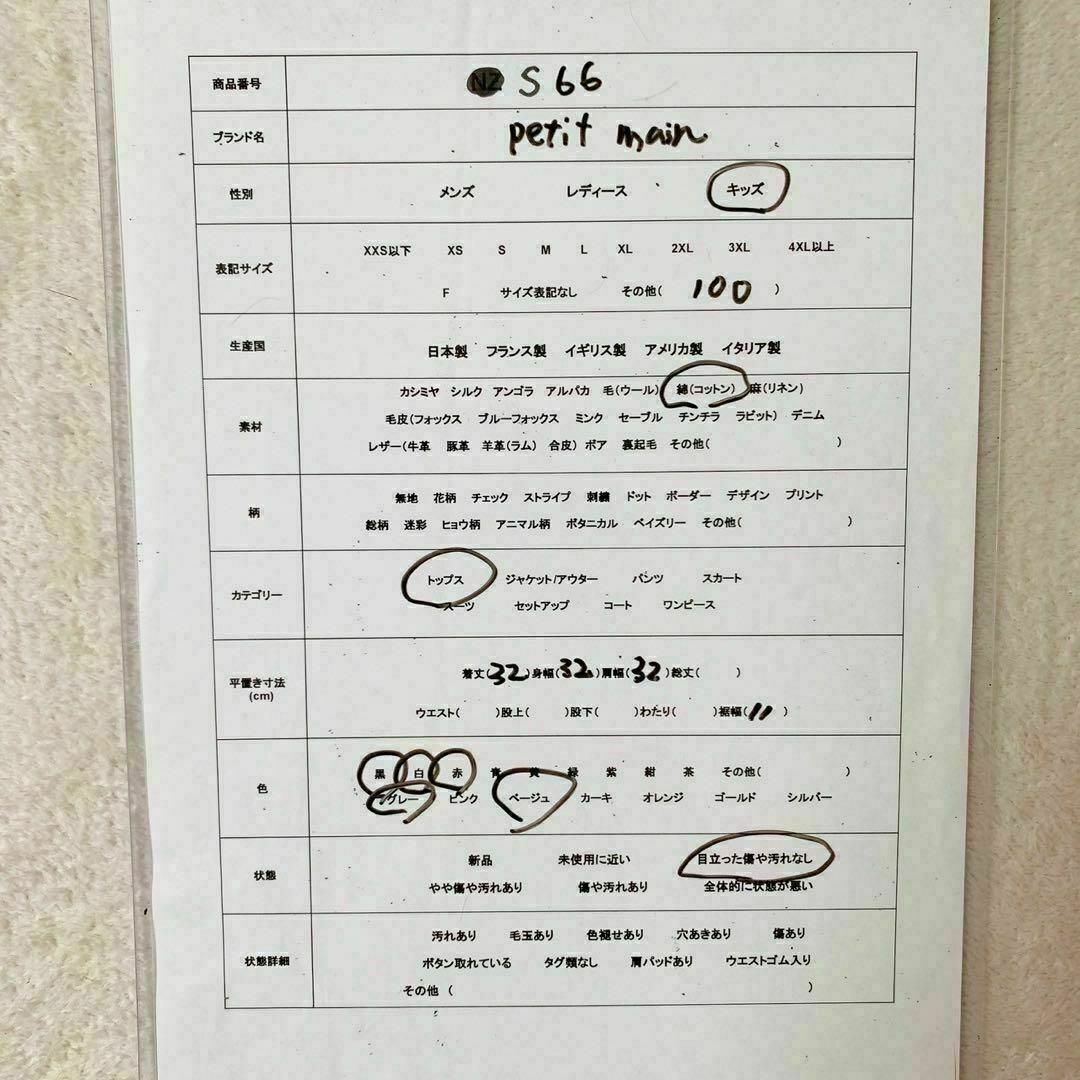 商品番号 NZ S66
ブランド名 petit main
性別 メンズ レディース キッズ
XXS以下 XS S M L XL 2XL 3XL 4XL以上
表記サイズ
F サイズ表記なし その他( 100 )
生産国 日本製 フランス製 イギリス製 アメリカ製 イタリア製
カシミヤ シルク アンゴラ アルパカ 毛(ウール) 綿(コットン) 麻(リネン)
素材 毛皮(フォックス ブルーフォックス ミンク セーブル チンチラ ラビット) デニム
レザー(牛革 豚革 羊革(ラム) 合皮) ボア 裏起毛 その他( )
無地 花柄 チェック ストライプ 刺繍 ドット ボーダー デザイン プリント
柄
総柄 迷彩 ヒョウ柄 アニマル柄 ボタニカル ペイズリー その他( )
トップス ジャケット/アウター パンツ スカート
カテゴリー
スーツ セットアップ コート ワンピース
着丈(32)身幅(32)肩幅(32)総丈( )
平置き寸法
(cm)
ウエスト( )股上( )股下( )わたり( )裾幅(11 )
黒 白 赤 青 黄 緑 紫 紺 茶 その他( )
色
グレー ピンク ベージュ カーキ オレンジ ゴールド シルバー
新品 未使用に近い 目立った傷や汚れなし
状態
やや傷や汚れあり 傷や汚れあり 全体的に状態が悪い
汚れあり 毛玉あり 色褪せあり 穴あきあり 傷あり
状態詳細 ボタン取れている タグ類なし 肩パッドあり ウエストゴム入り
その他 ( )